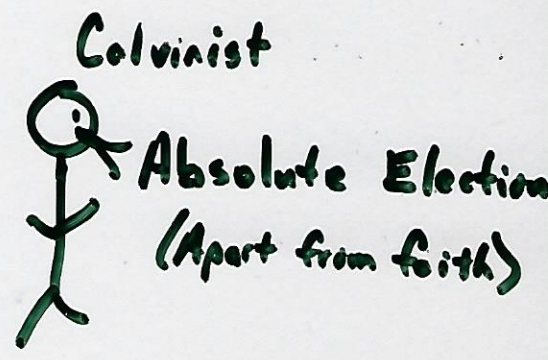 Calvinist
Absolute Election
(Apart from faith)